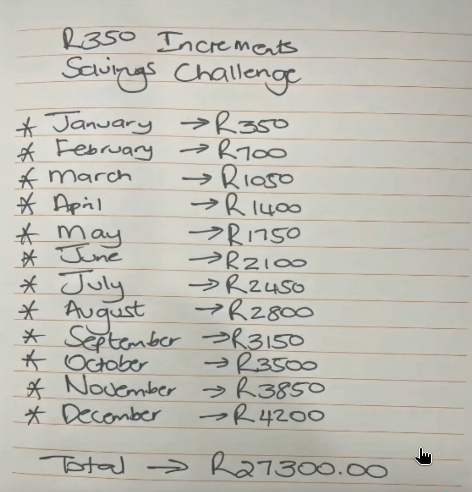 R350 Increments
Savings Challenge
* January → R350
* February → R700
* March → R1050
* April → R1400
* May → R1750
* June → R2100
* July → R2450
* August → R2800
* September → R3150
* October → R3500
* November → R3850
* December → R4200
Total → R27300.00